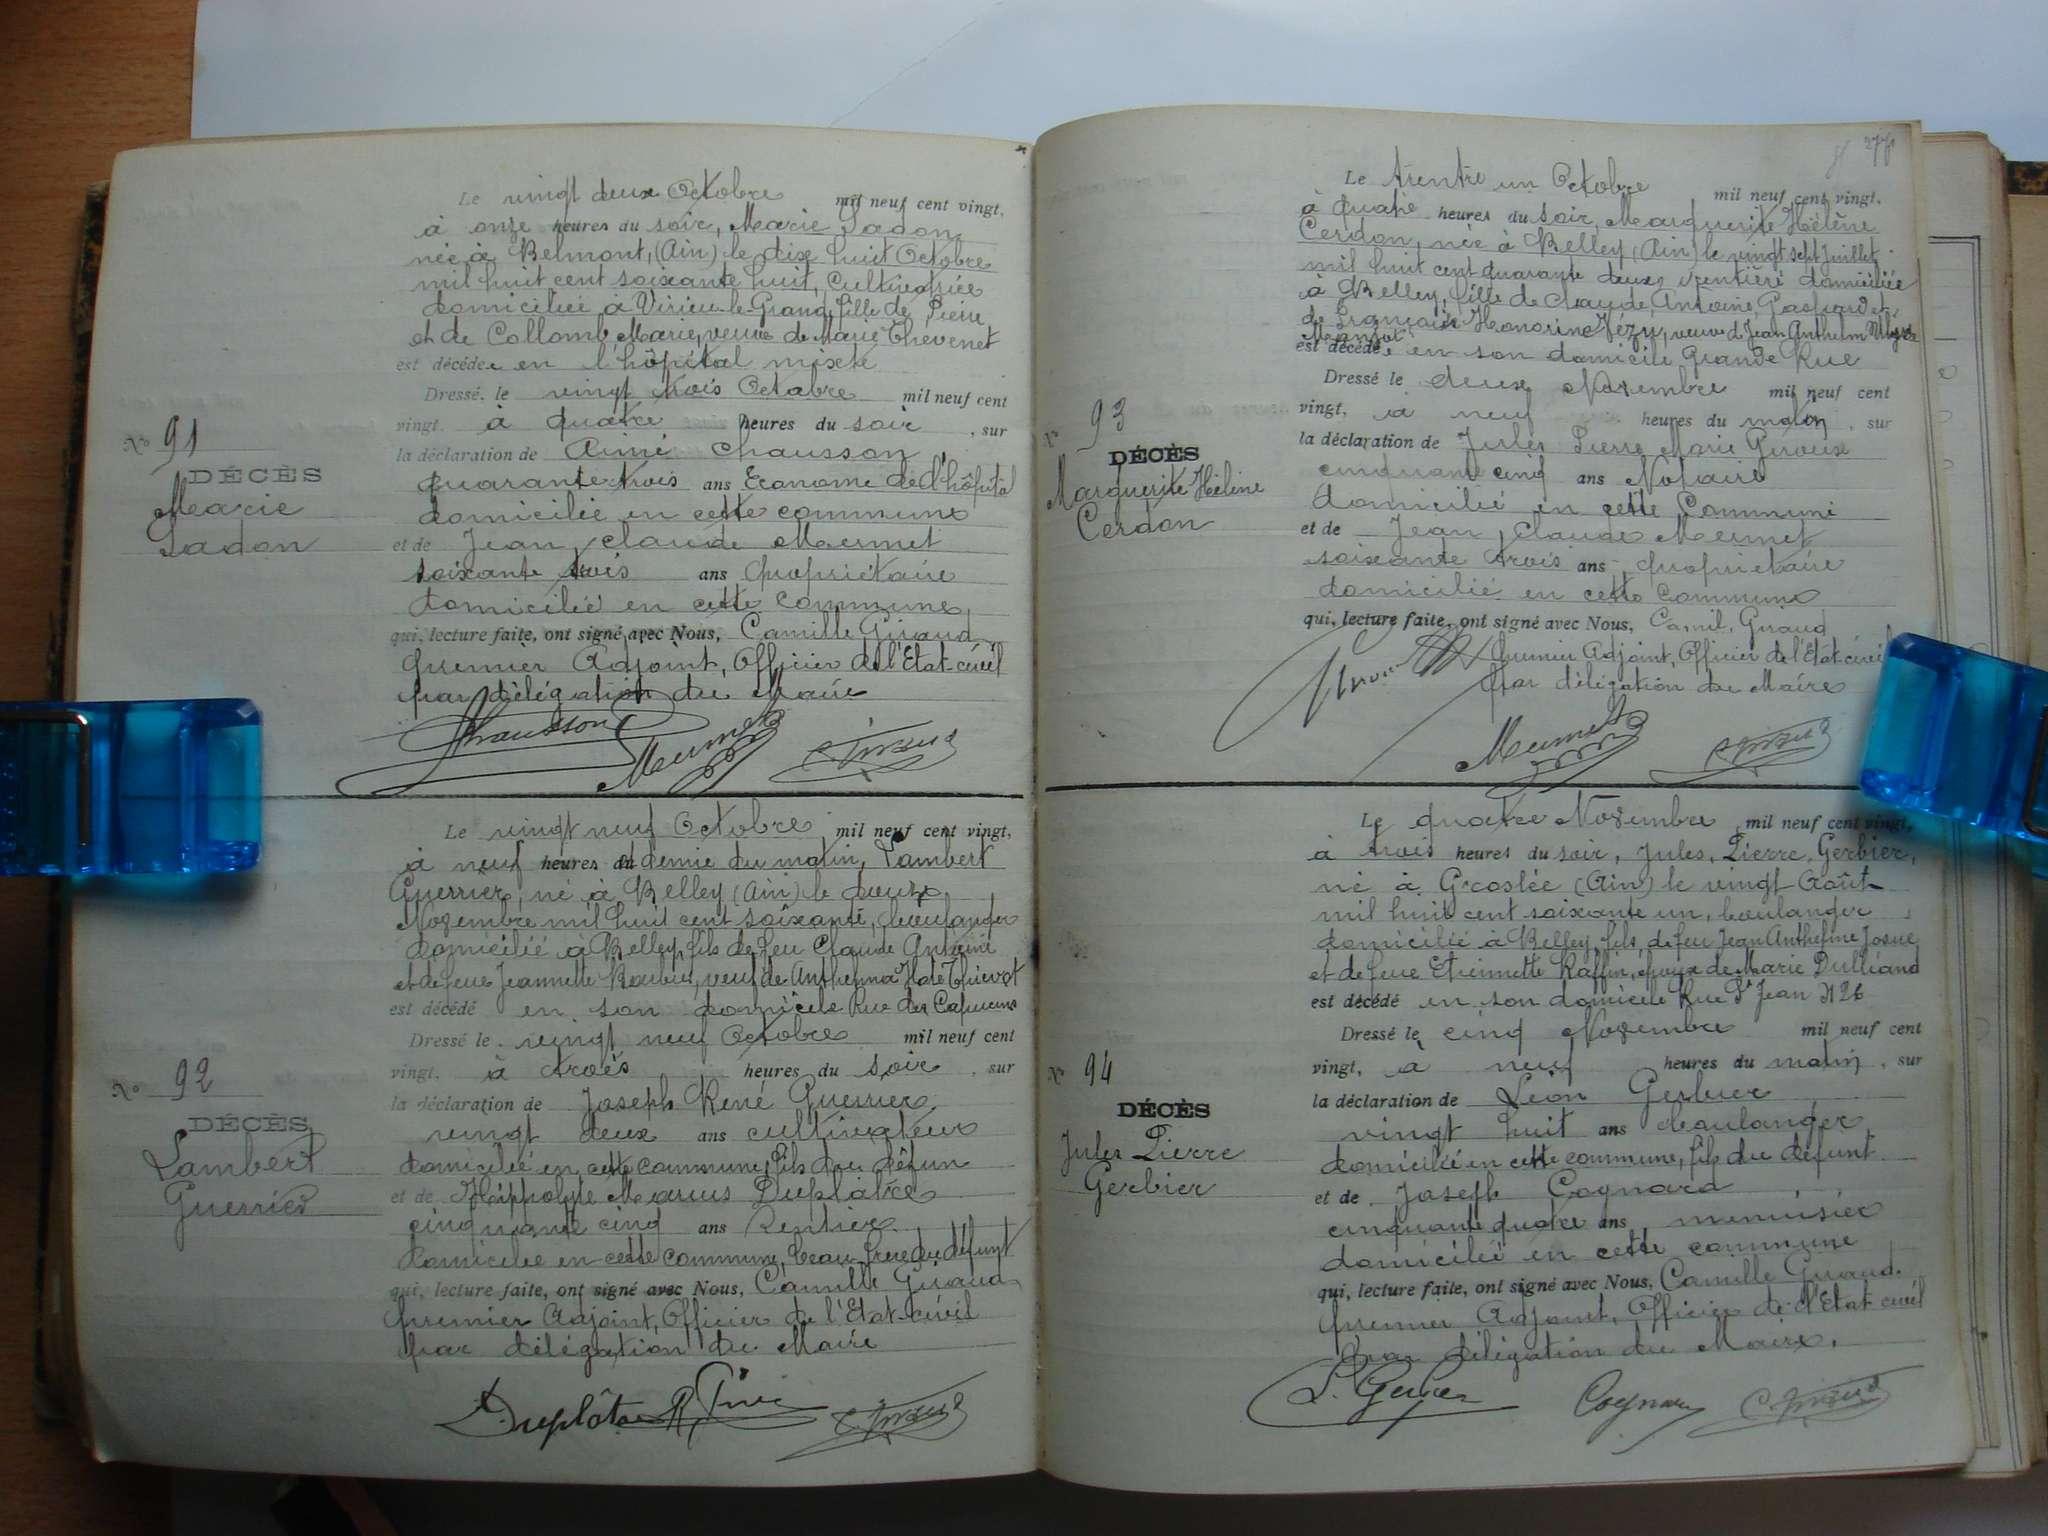 Le vingt deux Octobre mil neuf cent vingt,
à onze heures du soir, Marie Ladon
née à Belmont, (Ain) le dix huit Octobre
mil huit cent soixante huit, Cultivatrice
domiciliée à Virieu-le-Grand, fille de Pierre
et de Collomb Marie, veuve de Marie Thévenet
est décédée en l'hôpital mixte
Dressé, le vingt trois Octobre mil neuf cent
vingt, à quatre heures du soir, sur
la déclaration de Aimé Chausson
quarante trois ans Econome de l'hôpital
domicilié en cette commune
et de Jean Claude Mermet
soixante trois ans propriétaire
domicilié en cette commune,
qui, lecture faite, ont signé avec Nous, Camille Giraud
premier Adjoint, Officier de l'Etat-civil
par délégation du Maire
Chausson Mermet C. Giraud
No 91
DÉCÈS
Marie
Ladon
Le vingt neuf Octobre mil neuf cent vingt,
à neuf heures et demie du matin, Lambert
Guerrier, né à Belley (Ain) le deux
Novembre mil huit cent soixante, boulanger
domicilié à Belley, fils de feu Claude Antoine
et de feue Jeannette veuf de Anthelma
est décédé en son domicile Rue des Capucins
Dressé le vingt neuf Octobre mil neuf cent
vingt, à trois heures du soir, sur
la déclaration de Joseph René Guerrier
vingt deux ans cultivateur
domicilié en cette commune, fils du défunt
et de Hippolyte Marius Duplâtre
cinquante cinq ans Rentier
domicilié en cette commune, beau-frère du défunt
qui, lecture faite, ont signé avec Nous, Camille Giraud
premier Adjoint, Officier de l'Etat-civil
par délégation du Maire
Duplâtre C. Giraud
No 92
DÉCÈS
Lambert
Guerrier
277
Le trente un Octobre mil neuf cent vingt,
à quatre heures du soir, Marguerite Hélène
Cerdon, née à Belley, (Ain) le vingt sept Juillet
mil huit cent quarante deux, rentière domiciliée
à Belley, fille de Claude Antoine Gaspard et
de Françoise Honorine veuve de Jean Anthelm
est décédée en son domicile Grande Rue
Dressé le deux Novembre mil neuf cent
vingt, à neuf heures du matin, sur
la déclaration de Jules Pierre Marie Giroux
cinquante cinq ans Notaire
domicilié en cette Commune
et de Jean Claude Mermet
soixante trois ans, propriétaire
domicilié en cette Commune
qui, lecture faite, ont signé avec Nous, Camil. Giraud
premier Adjoint, Officier de l'Etat-civil
par délégation du Maire
Mermet C. Giraud
No 93
DÉCÈS
Marguerite Hélène
Cerdon
Le quatre Novembre mil neuf cent vingt,
à trois heures du soir, Jules, Pierre, Gerbier,
né à Groslée (Ain) le vingt Août
mil huit cent soixante un, boulanger
domicilié à Belley, fils de feu Jean Anthelme Josué
et de feue Etiennette Raffin, époux de Marie Dulliand
est décédé en son domicile Rue St Jean N 26
Dressé le cinq Novembre mil neuf cent
vingt, à neuf heures du matin, sur
la déclaration de Léon Gerbier
vingt huit ans boulanger
domicilié en cette commune, fils du défunt
et de Joseph Cognard
cinquante quatre ans, menuisier
domicilié en cette commune
qui, lecture faite, ont signé avec Nous, Camille Giraud.
premier Adjoint, Officier de l'Etat-civil
par délégation du Maire.
L. Gerbier Cognard C. Giraud
No 94
DÉCÈS
Jules Pierre
Gerbier